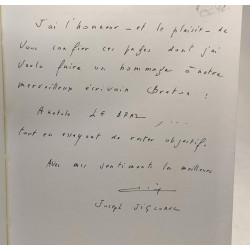 J'ai l'honneur - et le plaisir - de
vous confier ces pages dont j'ai
voulu faire un hommage à notre
merveilleux écrivain Breton :
Anatole LE BRAZ, ...
tout en essayant de rester objectif.
Avec mes sentiments les meilleurs
Joseph JIGOUREL